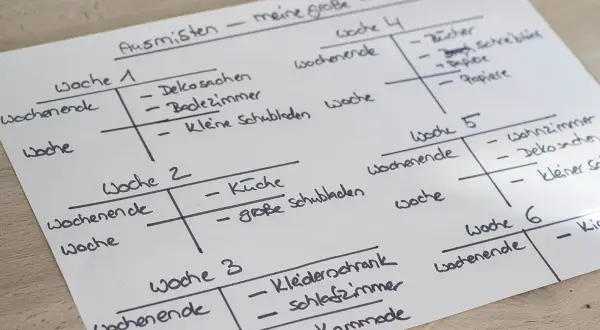 Ausmisten – meine große
Woche 1
Wochenende
– Dekosachen
– Badezimmer
Woche
– Kleine Schubladen
Woche 2
Wochenende
– Küche
Woche
– große Schubladen
Woche 3
Wochenende
– Kleiderschrank
– Schlafzimmer
Kommode
Woche 4
Wochenende
– Bücher
– Schreibtisch
+ Papiere
Woche
– Papiere
Woche 5
Wochenende
– Wohnzimmer
– Dekosachen
Woche
– Kleiner
Woche 6
Wochenende